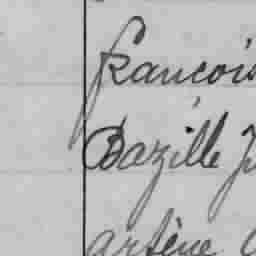 francois
Bazille
artène